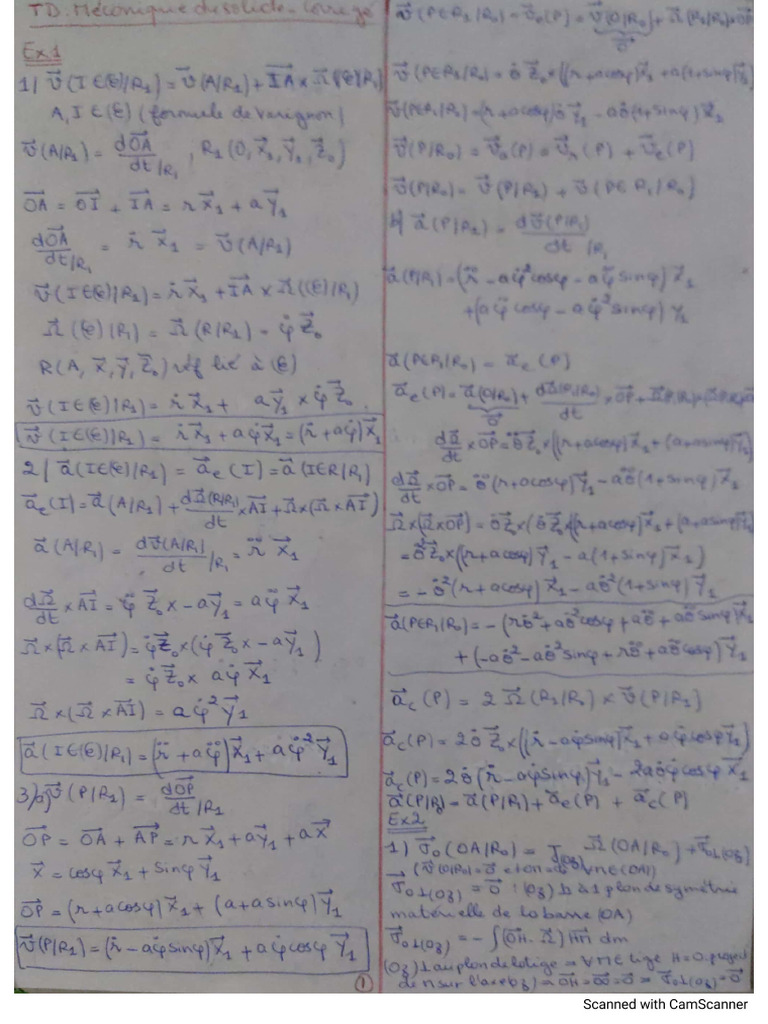 TD. Mécanique du solide - Corrigé
Ex1
1/ v⃗(I∈(C)/R₁) = v⃗(A/R₁) + IA⃗ × Ω⃗((C)/R₁)
A, I ∈ (C) (formule de varignon)
v⃗(A/R₁) = dOA⃗/dt /R₁ , R₁(O, X⃗₁, Y⃗₁, Z⃗₀)
OA⃗ = OI⃗ + IA⃗ = r X⃗₁ + a Y⃗₁
dOA⃗/dt /R₁ = ṙ X⃗₁ = v⃗(A/R₁)
v⃗(I∈(C)/R₁) = ṙ X⃗₁ + IA⃗ × Ω⃗((C)/R₁)
Ω⃗((C)/R₁) = Ω⃗(R/R₁) = φ̇ Z⃗₀
R(A, X⃗, Y⃗, Z⃗₀) réf lié à (C)
v⃗(I∈(C)/R₁) = ṙ X⃗₁ + a Y⃗₁ × φ̇ Z⃗₀
v⃗(I∈(C)/R₁) = ṙ X⃗₁ + aφ̇ X⃗₁ = (ṙ + aφ̇) X⃗₁
2/ a⃗(I∈(C)/R₁) = a⃗e(I) = a⃗(I∈R/R₁)
a⃗e(I) = a⃗(A/R₁) + dΩ⃗(R/R₁)/dt × AI⃗ + Ω⃗ × (Ω⃗ × AI⃗)
a⃗(A/R₁) = dv⃗(A/R₁)/dt /R₁ = r̈ X⃗₁
dΩ⃗/dt × AI⃗ = φ̈ Z⃗₀ × -a Y⃗₁ = aφ̈ X⃗₁
Ω⃗ × (Ω⃗ × AI⃗) = φ̇ Z⃗₀ × (φ̇ Z⃗₀ × -a Y⃗₁)
= φ̇ Z⃗₀ × aφ̇ X⃗₁
Ω⃗ × (Ω⃗ × AI⃗) = aφ̇² Y⃗₁
a⃗(I∈(C)/R₁) = (r̈ + aφ̈) X⃗₁ + aφ̇² Y⃗₁
3/a) v⃗(P/R₁) = dOP⃗/dt /R₁
OP⃗ = OA⃗ + AP⃗ = r X⃗₁ + a Y⃗₁ + a X⃗
X⃗ = cosφ X⃗₁ + sinφ Y⃗₁
OP⃗ = (r + a cosφ) X⃗₁ + (a + a sinφ) Y⃗₁
v⃗(P/R₁) = (ṙ - aφ̇ sinφ) X⃗₁ + aφ̇ cosφ Y⃗₁
①
v⃗(P∈R₁/R₀) = v⃗e(P) = v⃗(O/R₀) + Ω⃗(R₁/R₀) × OP⃗
0⃗
v⃗(P∈R₁/R₀) = θ̇ Z⃗₀ × ((r + a cosφ) X⃗₁ + a(1 + sinφ) Y⃗₁)
v⃗(P∈R₁/R₀) = (r + a cosφ) θ̇ Y⃗₁ - aθ̇(1 + sinφ) X⃗₁
v⃗(P/R₀) = v⃗a(P) = v⃗r(P) + v⃗e(P)
v⃗(P/R₀) = v⃗(P/R₁) + v⃗(P∈R₁/R₀)
b) a⃗(P/R₁) = dv⃗(P/R₁)/dt /R₁
a⃗(P/R₁) = (r̈ - aφ̇² cosφ - aφ̈ sinφ) X⃗₁
+ (aφ̈ cosφ - aφ̇² sinφ) Y⃗₁
a⃗(P∈R₁/R₀) = a⃗e(P)
a⃗e(P) = a⃗(O/R₀) + dΩ⃗(R₁/R₀)/dt × OP⃗ + Ω⃗(R₁/R₀) × (Ω⃗(R₁/R₀) × OP⃗
0⃗
dΩ⃗/dt × OP⃗ = θ̈ Z⃗₀ × ((r + a cosφ) X⃗₁ + (a + a sinφ) Y⃗₁)
dΩ⃗/dt × OP⃗ = θ̈ (r + a cosφ) Y⃗₁ - aθ̈ (1 + sinφ) X⃗₁
Ω⃗ × (Ω⃗ × OP⃗) = θ̇ Z⃗₀ × (θ̇ Z⃗₀ × ((r + a cosφ) X⃗₁ + (a + a sinφ) Y⃗₁
= θ̇² Z⃗₀ × ((r + a cosφ) Y⃗₁ - a(1 + sinφ) X⃗₁)
= - θ̇² (r + a cosφ) X⃗₁ - aθ̇² (1 + sinφ) Y⃗₁
a⃗(P∈R₁/R₀) = - (rθ̇² + aθ̇² cosφ + aθ̈ + aθ̈ sinφ) X⃗₁
+ (-aθ̇² - aθ̇² sinφ + rθ̈ + aθ̈ cosφ) Y⃗₁
a⃗c(P) = 2 Ω⃗(R₁/R₀) × v⃗(P/R₁)
a⃗c(P) = 2θ̇ Z⃗₀ × ((ṙ - aφ̇ sinφ) X⃗₁ + aφ̇ cosφ Y⃗₁)
a⃗c(P) = 2θ̇ (ṙ - aφ̇ sinφ) Y⃗₁ - 2aθ̇φ̇ cosφ X⃗₁
a⃗(P/R₀) = a⃗(P/R₁) + a⃗e(P) + a⃗c(P)
Ex2
1) σ⃗₀(OA/R₀) = J(Oz) Ω⃗(OA/R₀) + σ⃗₀⊥(Oz)
(v⃗(O/R₀) = 0⃗
σ⃗₀⊥(Oz) = 0⃗ : (Oz) ⊥ à 1 plan de symétrie
matérielle de la barre (OA)
σ⃗₀⊥(Oz) = - ∫(OH⃗ · Ω⃗) HM⃗ dm
(Oz) ⊥ au plan de la tige ⇒ ∀ M ∈ tige H = O: project
de M sur l'axe (Oz) ⇒ OH⃗ = OO⃗ = 0⃗ ⇒ σ⃗₀⊥(Oz) = 0⃗
Scanned with CamScanner